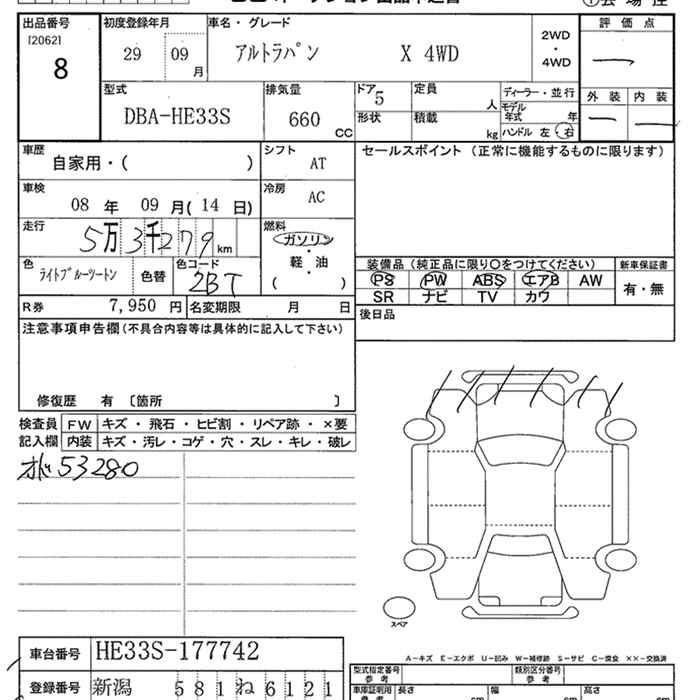 出品番号
[2062]
8
初度登録年月
29 09
月
車名・グレード
アルトラパン X 4WD
2WD
・
4WD
評価点
外装 内装
型式
DBA-HE33S
排気量
660
CC
ドア
5
形状
定員
人
積載
kg
ディーラー・並行
モデル
年式 年
ハンドル 左・右
車歴
自家用・( )
シフト
AT
セールスポイント (正常に機能するものに限ります)
車検
08 年 09 月( 14 日)
冷房
AC
走行
5万3千279 km
燃料
ガソリン
・
軽・油
・
( )
色
ライトブルーツートン
色替
色コード
2BT
装備品(純正品に限り〇をつけてください)
新車保証書
PS PW ABS エアB AW
有・無
SR ナビ TV カワ
R券 7,950 円
名変期限 月 日
後日品
注意事項申告欄(不具合内容等は具体的に記入して下さい)
修復歴 有 〔箇所 〕
検査員
記入欄
FW キズ・飛石・ヒビ割・リペア跡・×要
内装 キズ・汚レ・コゲ・穴・スレ・キレ・破レ
オド 53280
スペア
車台番号 HE33S-177742
A-キズ E-エクボ U-凹み W-補修跡 S-サビ C-腐食 XX-交換済
登録番号 新潟 581 ね 6121
型式指定番号
参考
類別区分番号
参考
車庫証明用
長さ cm
幅 cm
高さ cm